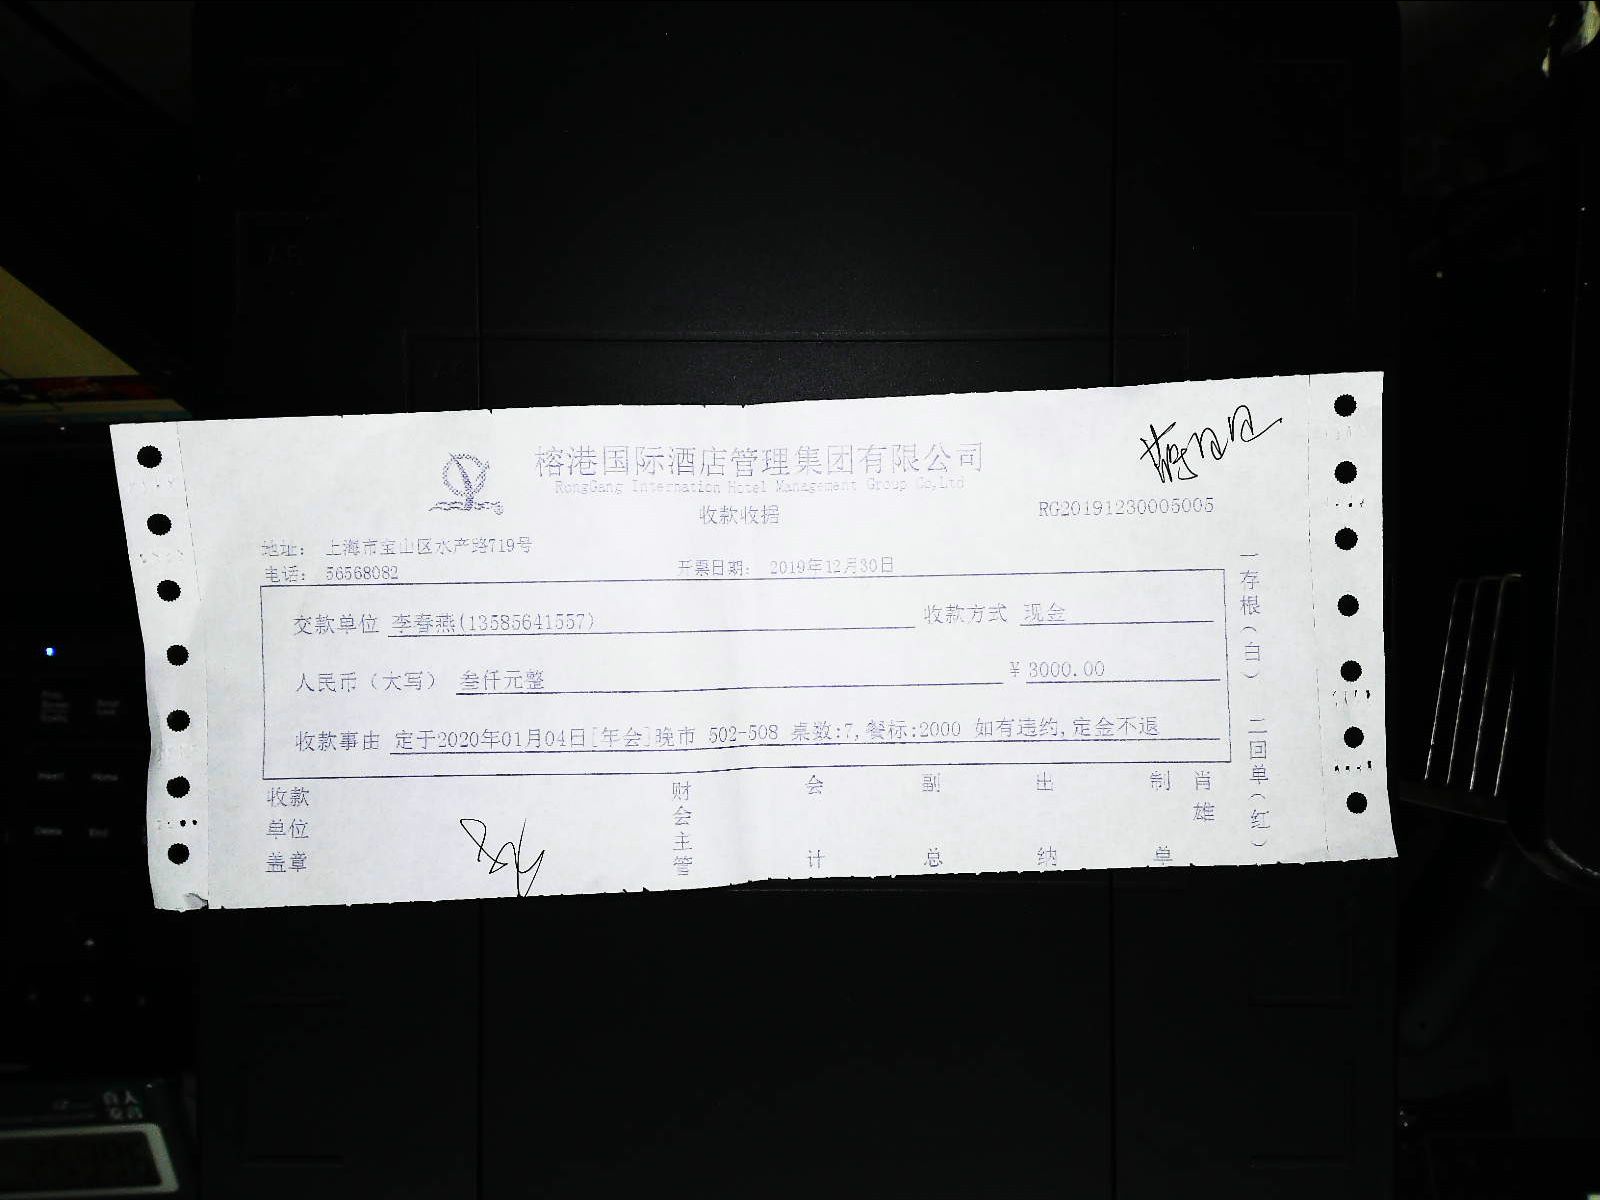 榕港国际酒店管理集团有限公司
RongGang Internation Hotel Management Group Co,Ltd
收款收据
RG20191230005005
地址: 上海市宝山区水产路719号
电话: 56568082
开票日期: 2019年12月30日
交款单位 李春燕(13585641557) 收款方式 现金
人民币(大写) 叁仟元整 ¥3000.00
收款事由 定于2020年01月04日[年会]晚市 502-508 桌数:7,餐标:2000 如有违约,定金不退
收款单位盖章
财会主管
会计
副总
出纳
制单
肖雄
一存根(白) 二回单(红)